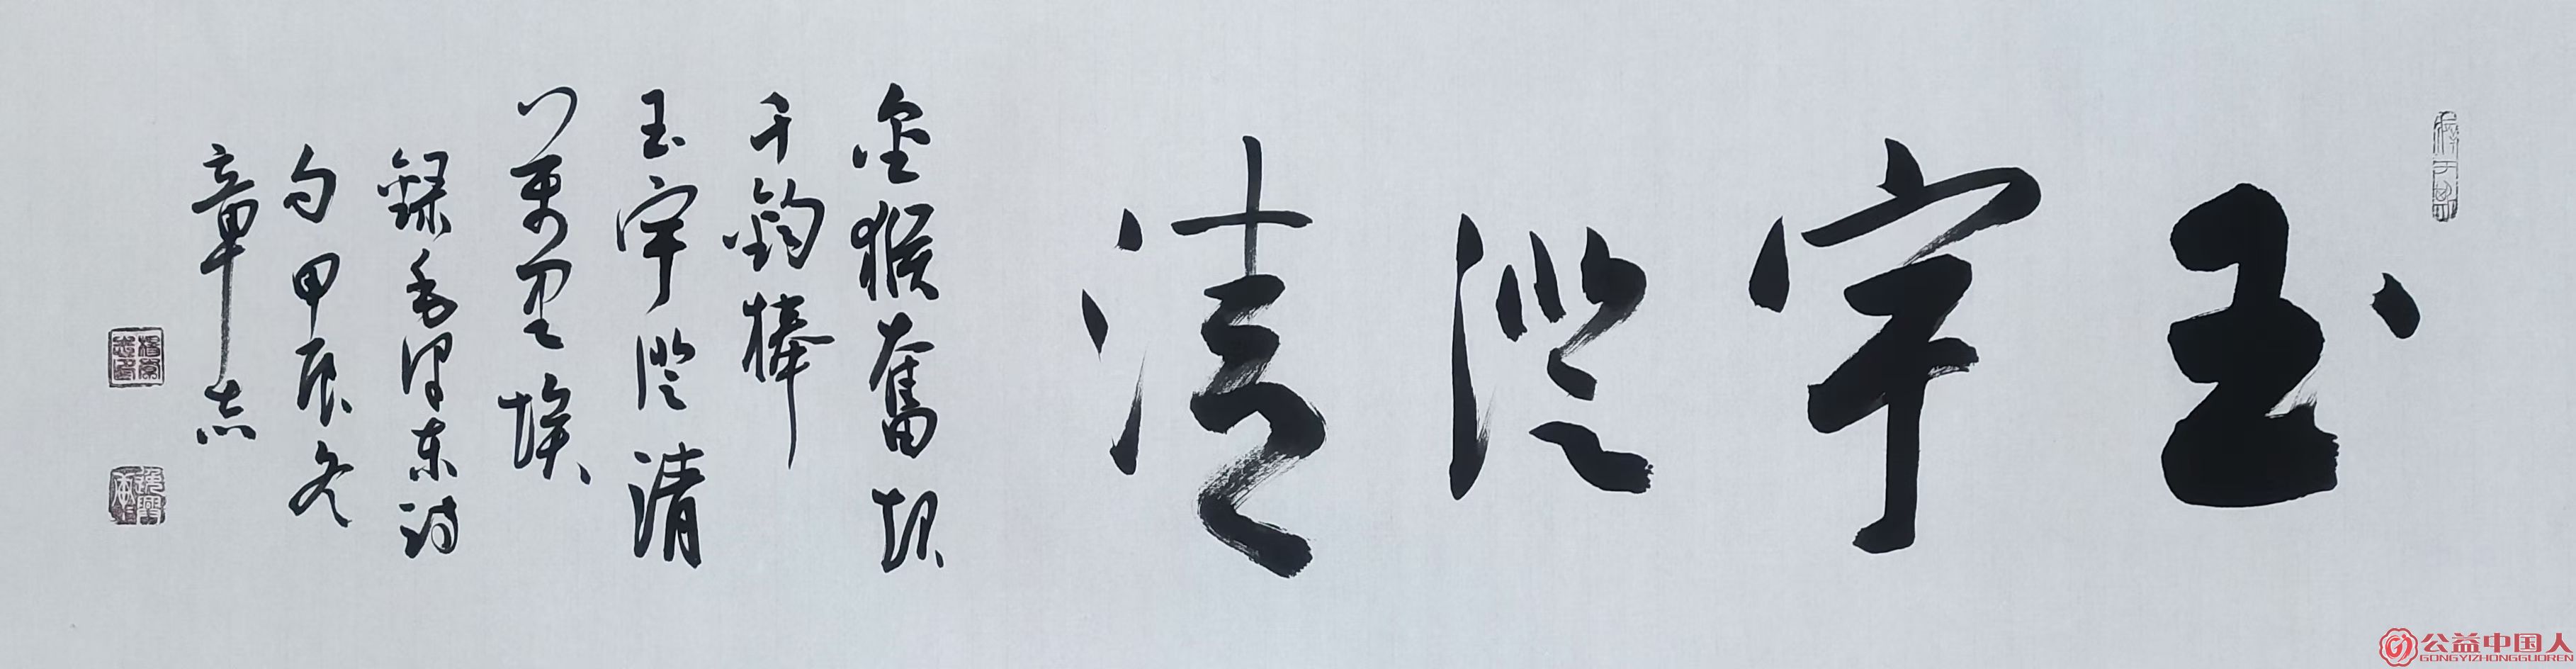 玉宇澄清
金猴奋起
千钧棒
玉宇澄清
万里埃
録毛泽东诗
句甲辰冬
章志
公益中国人
GONGYIZHONGGUOREN